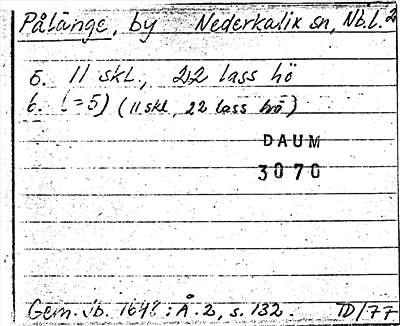 Pålänge, by Nederkalix sn, Nb.l. 2
5. 11 skl., 22 lass hö
6. (=5) (11 skl, 22 lass hö)
DAUM
3070
Gem. jb. 1648: Å. 2, s. 132. TD/77